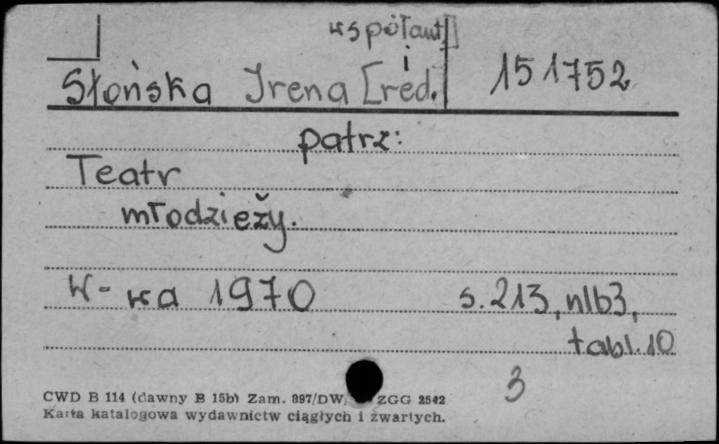 współaut.]
i
Słońska Irena [red. 151752
patrz:
Teatr
młodzieży.
W-wa 1970 s. 213, nlb3,
tabl. 10
3
CWD B 114 (dawny B 15b) Zam. 897/DW ZGG 2542
Karta katalogowa wydawnictw ciągłych i zwartych.